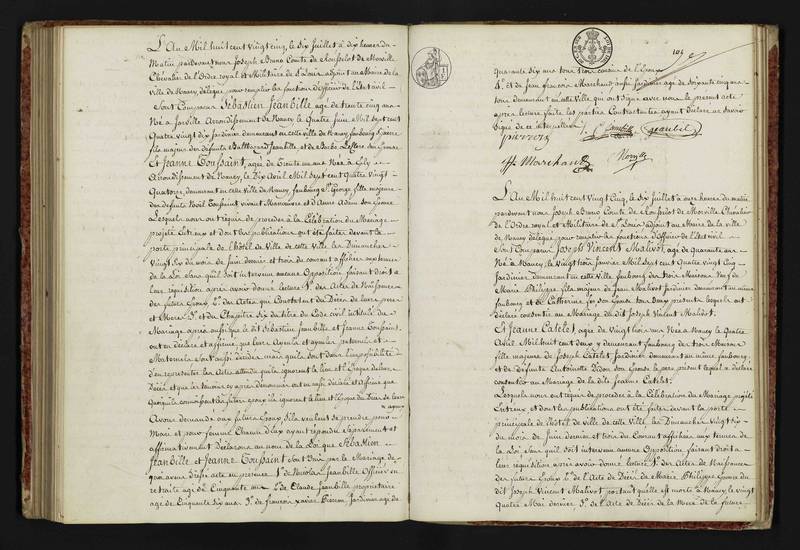 L'An Mil huit cent vingt cinq, le Six Juillet à dix heures du
Matin pardevant nous Joseph Bruno Comte de Rousselot de Morville
Chevalier de l'Ordre royal et Militaire de St Louis adjoint au Maire de la
ville de Nancy, délégué pour remplir les fonctions d'Officier de l'Etat civil
Sont Comparus Sébastien Jeanbille agé de trente cinq ans
Né à Jarville Arrondissement de Nancy le Quatre Juin Mil sept cent
Quatre vingt dix Jardinier demeurant en cette ville de Nancy, faubourg
fils majeur des défunts Balthazard Jeanbille, et de Barbe
Et Jeanne Toussaint, agée de Trente un ans Née à
Arrondissement de Nancy, le Dix Avril Mil sept cent Quatre Vingt
Quatorze, demeurant en cette Ville de Nancy, faubourg St George, fille majeure
des défunts Noël Toussaint vivant Manoeuvre et d'Anne Adam son Epouse
Lesquels nous ont requis de procéder à la Célébration du Mariage
projeté entreux et dont les publications ont été faites devant la
porte principale de l'hôtel de Ville de cette Ville les Dimanches
Vingt Six du mois de Juin dernier et trois du courant affichées aux termes
de la Loi sans quil soit intervenu aucune Opposition faisant droit à
leur réquisition après avoir donné lecture 1° des Actes de Naissance
des futurs Epoux 2° des Actes qui Constatent les Décès de leurs pere
et Mere 3° et du Chapitre Six du titre du Code civil intitulé du
Mariage après aussi que le dit Sébastien Jeanbille et Jeanne Toussaint
ont eu déclaré et affirmé que leurs Ayeuls et ayeules paternels et
Maternels sont aussi décédés mais quils sont dans l'impossibilité
d'en représenter les Actes attendu quils ignorent le lieu et l'Epoque de leurs
Décès et que les témoins ci après dénommés ont eu aussi déclaré et affirmé que
quoiquils connaissent les futurs Epoux ils ignorent le lieu et l'Epoque du Décès de leurs
ayeux
Avons demandé aux futurs Epoux sils veulent se prendre pour
Mari et pour femme Chacun d'eux ayant répondu Séparément et
affirmativement déclarons au nom de la Loi que Sébastien
Jeanbille et Jeanne Toussaint Sont Unis par le Mariage de
quoi avons dressé acte en présence 1° de Nicolas Jeanbille Officier en
retraite agé de Cinquante ans 2° de Claude Jeanbille propriétaire
agé de Cinquante six ans 3° de françois xavier Pierron Jardinier agé de
104
Quarante Six ans tous trois
4° et de Jean françois Marchand aussi Jardinier agé de soixante cinq ans
tous demeurant en cette ville qui ont signé avec nous le present acte
après lecture faite les parties Contractantes ayant déclaré ne savoir
signé de ce interpellées
Jeanbille
Marchand
L'An Mil huit cent Vingt Cinq, le Six Juillet à onze heures du matin
pardevant nous Joseph Bruno Comte de Rousselot de Morville Chevalier
de l'Ordre royal et Militaire de St Louis adjoint au Maire de la ville
de Nancy délégué pour remplir les fonctions d'Officier de l'Etat civil
Sont Comparus Joseph Vincent Malivot, agé de Quarante ans
Né à Nancy, le Vingt trois Janvier Mil sept cent Quatre vingt Cinq
Jardinier demeurant en cette Ville faubourg des trois Maisons Veuf de
Marie Philippe fils majeur de Jean Malivot Jardinier demeurant au même
faubourg et de Catherine son Epouse tous deux présents lesquels ont
déclaré consentir au Mariage du dit Joseph Vincent Malivot
Et Jeanne Catelet agée de Vingt trois ans Née à Nancy le Quatre
Avril Mil huit cent deux y demeurant faubourg des trois Maisons
fille majeure de Joseph Catelet Jardinier demeurant au même faubourg,
et de défunte Antoinette Didon son Epouse le pere présent lequel a déclaré
consentir au Mariage de la dite Jeanne Catelet
Lesquels nous ont requis de procéder à la Célébration du Mariage projeté
Entreux et dont les publications ont été faites devant la porte
principale de l'hôtel de Ville de cette Ville, les Dimanches Vingt Six
du mois de Juin dernier et trois du Courant affichées aux termes de
la Loi Sans quil soit intervenu aucune Opposition faisant droit à
leur réquisition après avoir donné lecture 1° des Actes de Naissance
des futurs Epoux 2° de l'Acte de Décès de Marie Philippe Epouse du
dit Joseph Vincent Malivot portant qu'elle est morte à Nancy le vingt
Quatre Mai dernier 3° de l'Acte de Décès de la Mere de la future